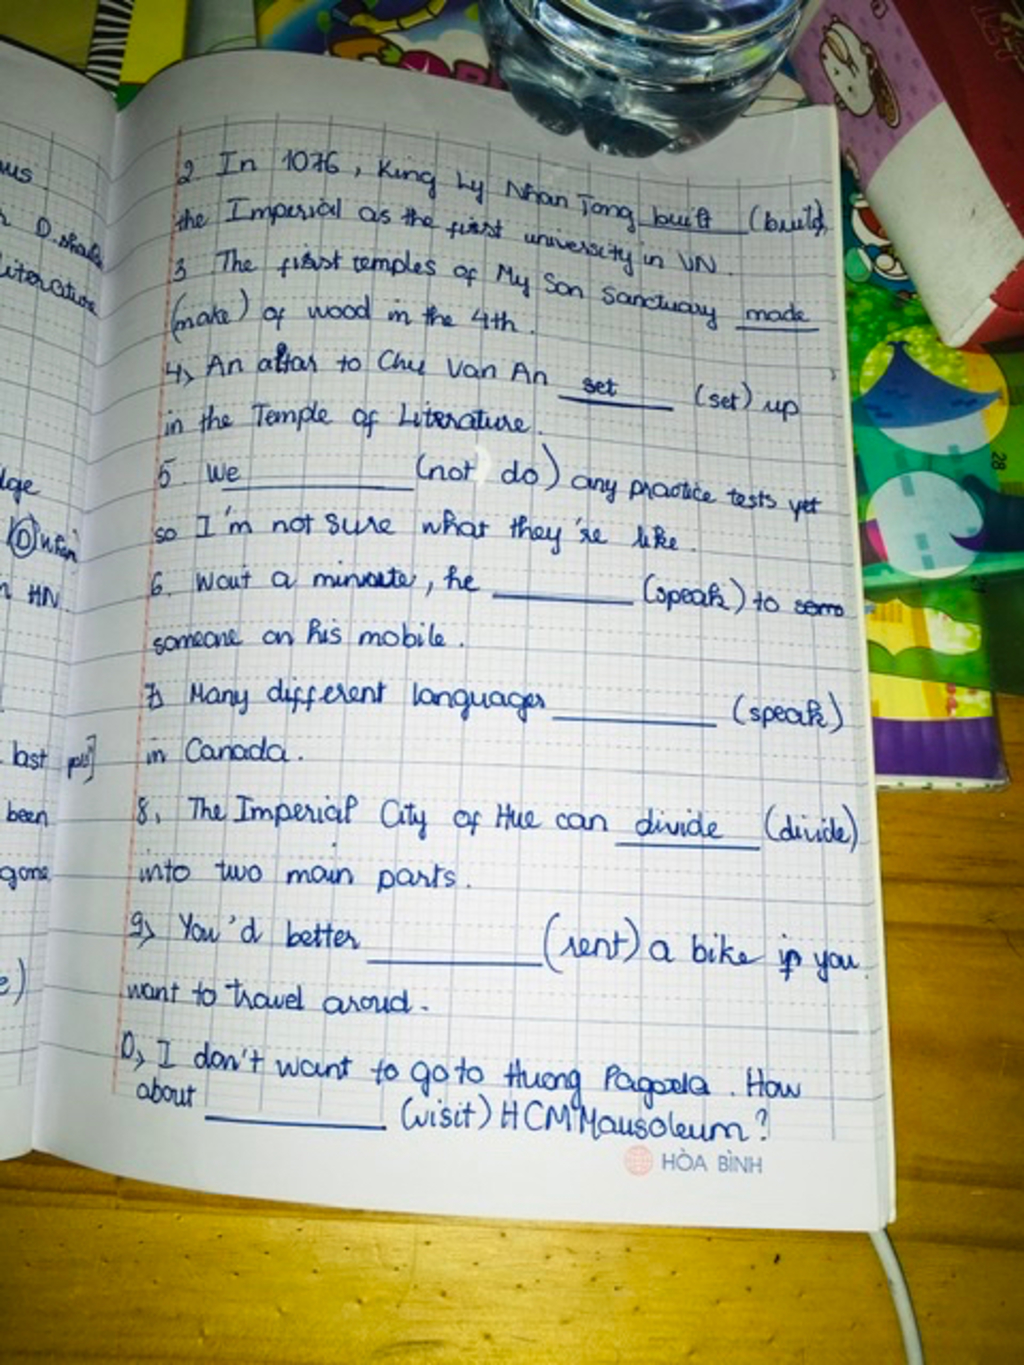 us
D. shall
literature
2 In 1076, King Ly Nhan Tong built (build)
the Imperial as the first university in VN.
3 The first temples of My Son Sanctuary made
(make) of wood in the 4th.
4, An altar to Chu Van An set (set) up
in the Temple of Literature.
5. We ________ (not do) any practice tests yet
so I'm not sure what they're like.
6. Wait a minute, he ________ (speak) to
someone on his mobile.
7, Many different languages ________ (speak)
in Canada.
8, The Imperial City of Hue can divide (divide)
into two main parts.
9, You'd better ________ (rent) a bike if you
want to travel aroud.
0, I don't want to go to Huong Pagoda. How
about ________ (visit) HCM Mausoleum?
HÒA BÌNH
dge
HN
last
been
gone
e)
28